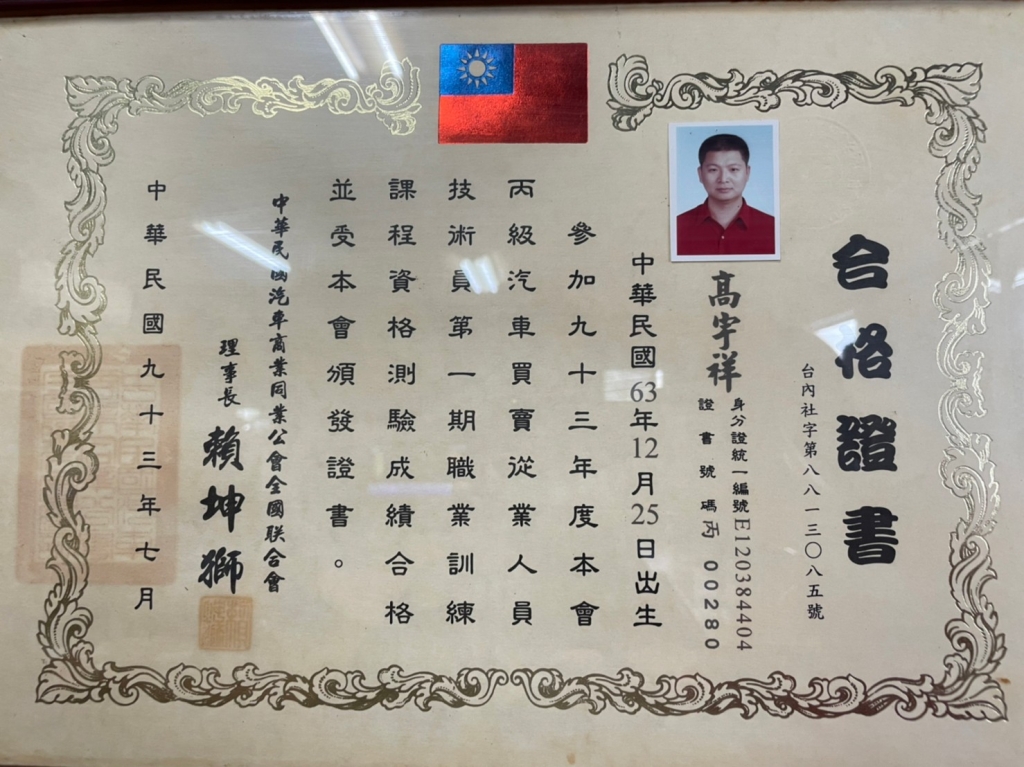 合格證書
台內社字第八八一三〇八五號
高宇祥
身分證統一編號E120384404
證書號碼丙00280
中華民國63年12月25日出生
參加九十三年度本會
丙級汽車買賣從業人員
技術員第一期職業訓練
課程資格測驗成績合格
並受本會頒發證書。
中華民國汽車商業同業公會全國联合會
理事長 賴坤獅
中華民國九十三年七月